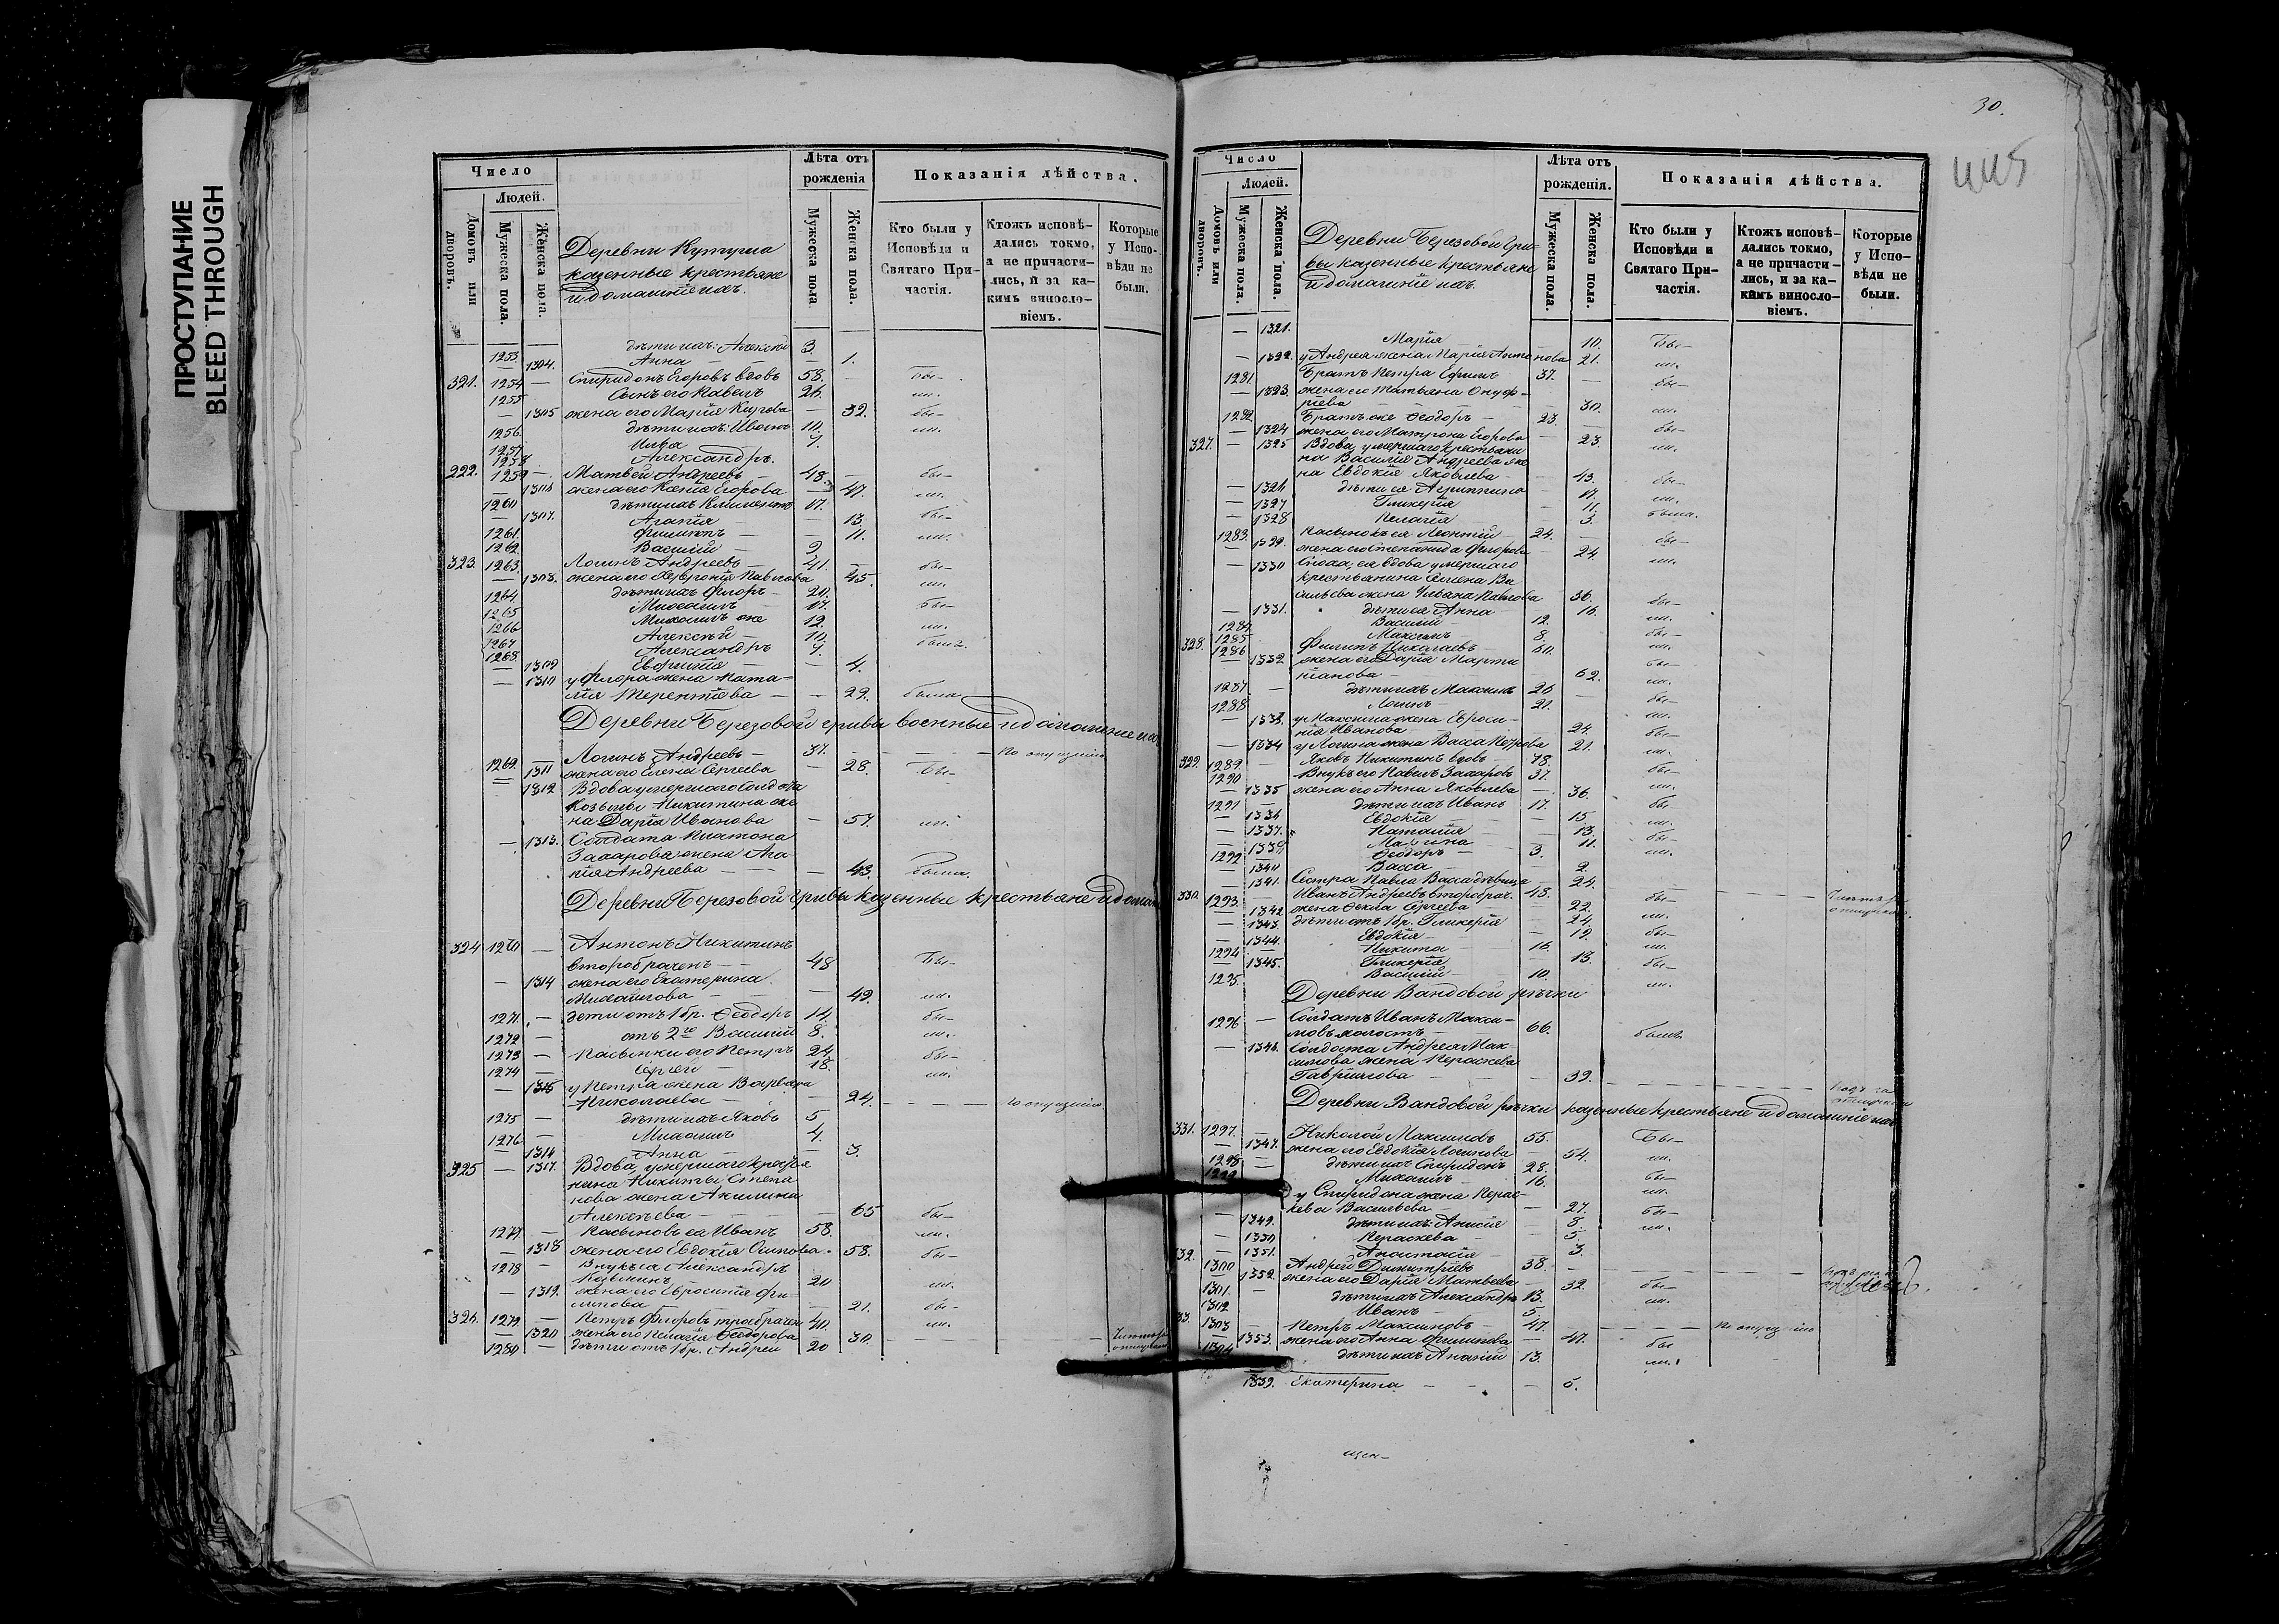 ПРОСТУПАНИЕ
BLEED THROUGH
Число
Людей.
Домовъ или дворовъ.
Мужеска пола.
Женска пола.
Деревни Кутуша
казенные крестьяне
и домашніе ихъ.
Лѣта отъ рожденія
Мужеска пола
Женска пола.
Показанія дѣйства.
Кто были у Исповѣди и Святаго Причастія.
Ктожъ исповѣдались токмо, а не причастились, и за какимъ винословіемъ.
Которые у Исповѣди не были.
1253. дѣти ихъ: Алексѣй 3.
1304. Анна — 1.
321. 1254 — Спиридонъ Егоровъ вдовъ 58. — бы—
1255 Сынъ его Павелъ ли.
— 1305 жена его Марія Кирова — 32. бы—
1256. дѣти ихъ: Иванъ ли.
1257 Илья 7.
1258 Александръ.
222. 1259 — Матвей Андреевъ 48. — бы—
— жена его Ксенія Егорова — 47. ли.
1260 дѣти ихъ Климентъ 17.
— 1307. Агапія — 13. бы—
1261. Филиппъ — 11. ли.
1262. Василій — 9
323. 1263. Логинъ Андреевъ 41. — бы—
— 1308. жена его Февронія Павлова 45. ли.
1264 дѣти ихъ Флоръ 20.
1265 Михаилъ 17. бы—
1266 Михаилъ же 12. ли.
1267 Алексѣй 10. были.
1268. Александръ 7.
— 1309 Евфимія — 4.
— 1310 у Флора жена Ната-
лія Терентіева — 22. была
Деревни Березовой гривы военные и домашніе ихъ
1269. — Логинъ Андреевъ 37. — — — По опущенію
— 1311 жена его Елена Сергеева — 28. Бы—
— 1312 Вдова умершаго Солдата
Козьмы Никитина же
на Дарія Иванова — 57. ли.
— 1313. Солдата Платона
Захарова жена Ага
пія Андреева — 43. была.
Деревни Березовой гривы казенные крестьяне и домаш
324 1270 — Антонъ Никитинъ
второбраченъ — 48 Бы—
— 1314 жена его Екатерина
Михайлова — 49. ли.
1271. — дети отъ 1 бр. Ѳеодоръ 14. бы—
1272 — отъ 2го Василій 8. ли.
1273 — Пасынки его Петръ 24. бы—
1274 — Сергей — 18. ли.
— 1315 у Петра жена Варвара
Николаева — 24. — — — По опущенію
1275 — дѣти ихъ Яковъ 5
1276 — Михаилъ 4.
— 1316 Анна — 3.
325 — 1317. Вдова умершаго крестья
нина Никиты Степа
нова жена Акилина
Алексѣева — 65 бы—
1277. — Пасынокъ ея Иванъ 58. ли.
— 1318 жена его Евдокія Осипова. 58. бы—
1278 — Внукъ ея Александръ
Козьминъ 20 ли.
— 1319. жена его Евросинія Фи-
липова — 21. бы—
326. 1279 — Петръ Флоровъ тробрачен 40 ли.
— 1320 жена его Пелагія Ѳеодорова 30.
1280 — дѣти отъ 1 бр. Андрей 20
30.
Число
Людей.
Домовъ или дворовъ.
Мужеска пола.
Женска пола.
Деревни Березовой Гри-
вы казенные крестьяне
и домашніе ихъ.
Лѣта отъ рожденія.
Мужеска пола.
Женска пола.
Показанія дѣйства.
Кто были у Исповѣди и Святаго Причастія.
Ктожъ исповѣдались токмо, а не причастились, и за какимъ винословіемъ.
Которые у Исповѣди не были.
— 1321. Марія — 10. Бы—
— 1322. у Андрея жена Марія Антонова 21. ли.
1281. Братъ Петра Ефимъ 37. — бы—
— 1323. жена его Татьяна Онуф-
ріева — 30. ли.
1282 Братъ же Ѳеодоръ 23. бы—
— 1324 жена его Матрона Егорова — 23 ли.
327. — 1325 Вдова умершаго крестьяни
на Василія Андреева же
на Евдокія Яковлева — 43. бы—
— 1326 дѣти ея Агриппина 17. ли.
— 1327 Гликерія — 11. была.
— 1328 Пелагія 3.
1283. Пасынокъ ея Леонтій 24. — бы—
— 1329. жена его Степанида Флорова 24. ли.
— 1330 Сноха ея вдова умершаго
крестьянина Семена Ва
сильева жена Ульяна Павлова 36. бы—
— 1331. дѣти ея Анна 16. ли.
1284. Василій — 12. бы—
1285 Максимъ 8. ли.
328. 1286 Филипъ Николаевъ 60. бы—
— 1332. жена его Дарія Марти
ніанова — 62. ли.
1287. — дѣти ихъ Максимъ 26 бы—
1288 Логинъ 21. ли.
— 1333. у Максима жена Евроси-
нія Иванова — 24. бы—
— 1334 у Логина жена Васса Петрова 21. ли.
329. 1289. — Яковъ Никитинъ вдовъ 78. бы—
1290 Внукъ его Павелъ Захаровъ 37. ли.
— 1335 жена его Анна Яковлева — 36. бы—
1291 — дѣти ихъ Иванъ 17. ли.
— 1336 Евдокія — 15. бы—
— 1337. Наталія — 13. ли.
1338 11.
1292 Ѳеодоръ — 3.
— 1340 Васса — 2.
— 1341. Сестра Павла Васса дѣвица 24.
330. 1293. — Иванъ Андреевъ второбрач. 48. бы—
— 1342. жена Фекла Сергеева — 22. ли.
— 1343. дѣти отъ 1 бр. Гликерія — 24. бы—
— 1344. Евдокія — 19. ли.
1294 — Никита — 16.
— 1345. Гликерія — 13. бы—
1295. Василій — 10 ли.
Деревни Вандовой рѣчки
1296 — Солдатъ Иванъ Макси-
мовъ холостъ — 66. былъ
— 1346. Солдата Андрея Мак-
симова жена Параскева
Гавріилова — 39.
Деревни Вандовой рѣчки казенные крестьяне и домашніе ихъ
331. 1297. — Николай Максимовъ 55. Бы—
— 1347. жена его Евдокія Логинова 54. ли.
1298 — дѣти ихъ Спиридонъ 28. бы—
1299 Михаилъ — 16. ли.
у Спиридона жена Парас-
кева Васильева — 27. бы—
— 1349. дѣти ихъ: Анисія — 8. ли.
— 1350 Параскева — 5.
— 1351. Анастасія — 3.
332. 1300 Андрей Димитріевъ 38.
— 1352. жена его Дарія Матвеева 32. бы—
1301. дѣти ихъ Александръ 13. ли.
1302 Иванъ — 5
33. 1303 — Петръ Максимовъ — 47. — — — По опущенію
— 1353. жена его Анна Филипова — 47. бы
1304 дѣти ихъ Ананій 13. ли.
1339. Екатерина — — — 5.